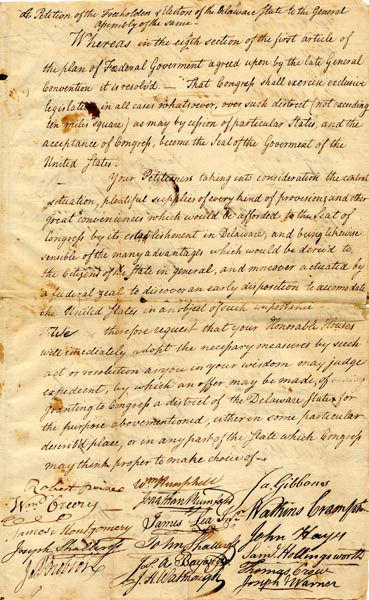 A Petition of the Freeholders & Electors of the Delaware State to the General
Assembly of the same.
Whereas in the eigth section of the first article of
the plan of Fœderal Goverment agreed upon by the late General
Convention it is resolv'd. — That Congress shall exercise exclusive
legislation in all cases whatsoever, over such district (not exceeding
ten miles square) as may by cession of particular States, and the
acceptance of Congress, become the Seat of the Goverment of the
United States.
Your Petitioners taking into consideration the central
situation, plentiful supplies of every kind of provision, and other
great conveniences which would be afforded to the Seat of
Congress by its establishment in Delaware, and being likewise
sensible of the many advantages which would be deriv'd to
the Citizens of the State in general, and moreover actuated by
a federal zeal to discover an early disposition to accomodate
the United States in an object of such importance
We therefore request that your Honorable Houses
will imediately adopt the necessary measures by such
act or resolution as you in your wisdom may judge
expedient, by which an offer may be made, of
granting to Congress a district of the Delaware State for
the purpose abovementioned, either in some particular
describ'd place, or in any part of the State which Congress
may think proper to make choice of.
Robert
Wm Humphell
Ja. Gibbons
Jonathan Rumford
Watkins Crampton
James Montgomery
James Lea
John Hayes
Joseph Shallcross
John Shallcross
Saml Hollingsworth
Thomas Crow
Joseph Warner